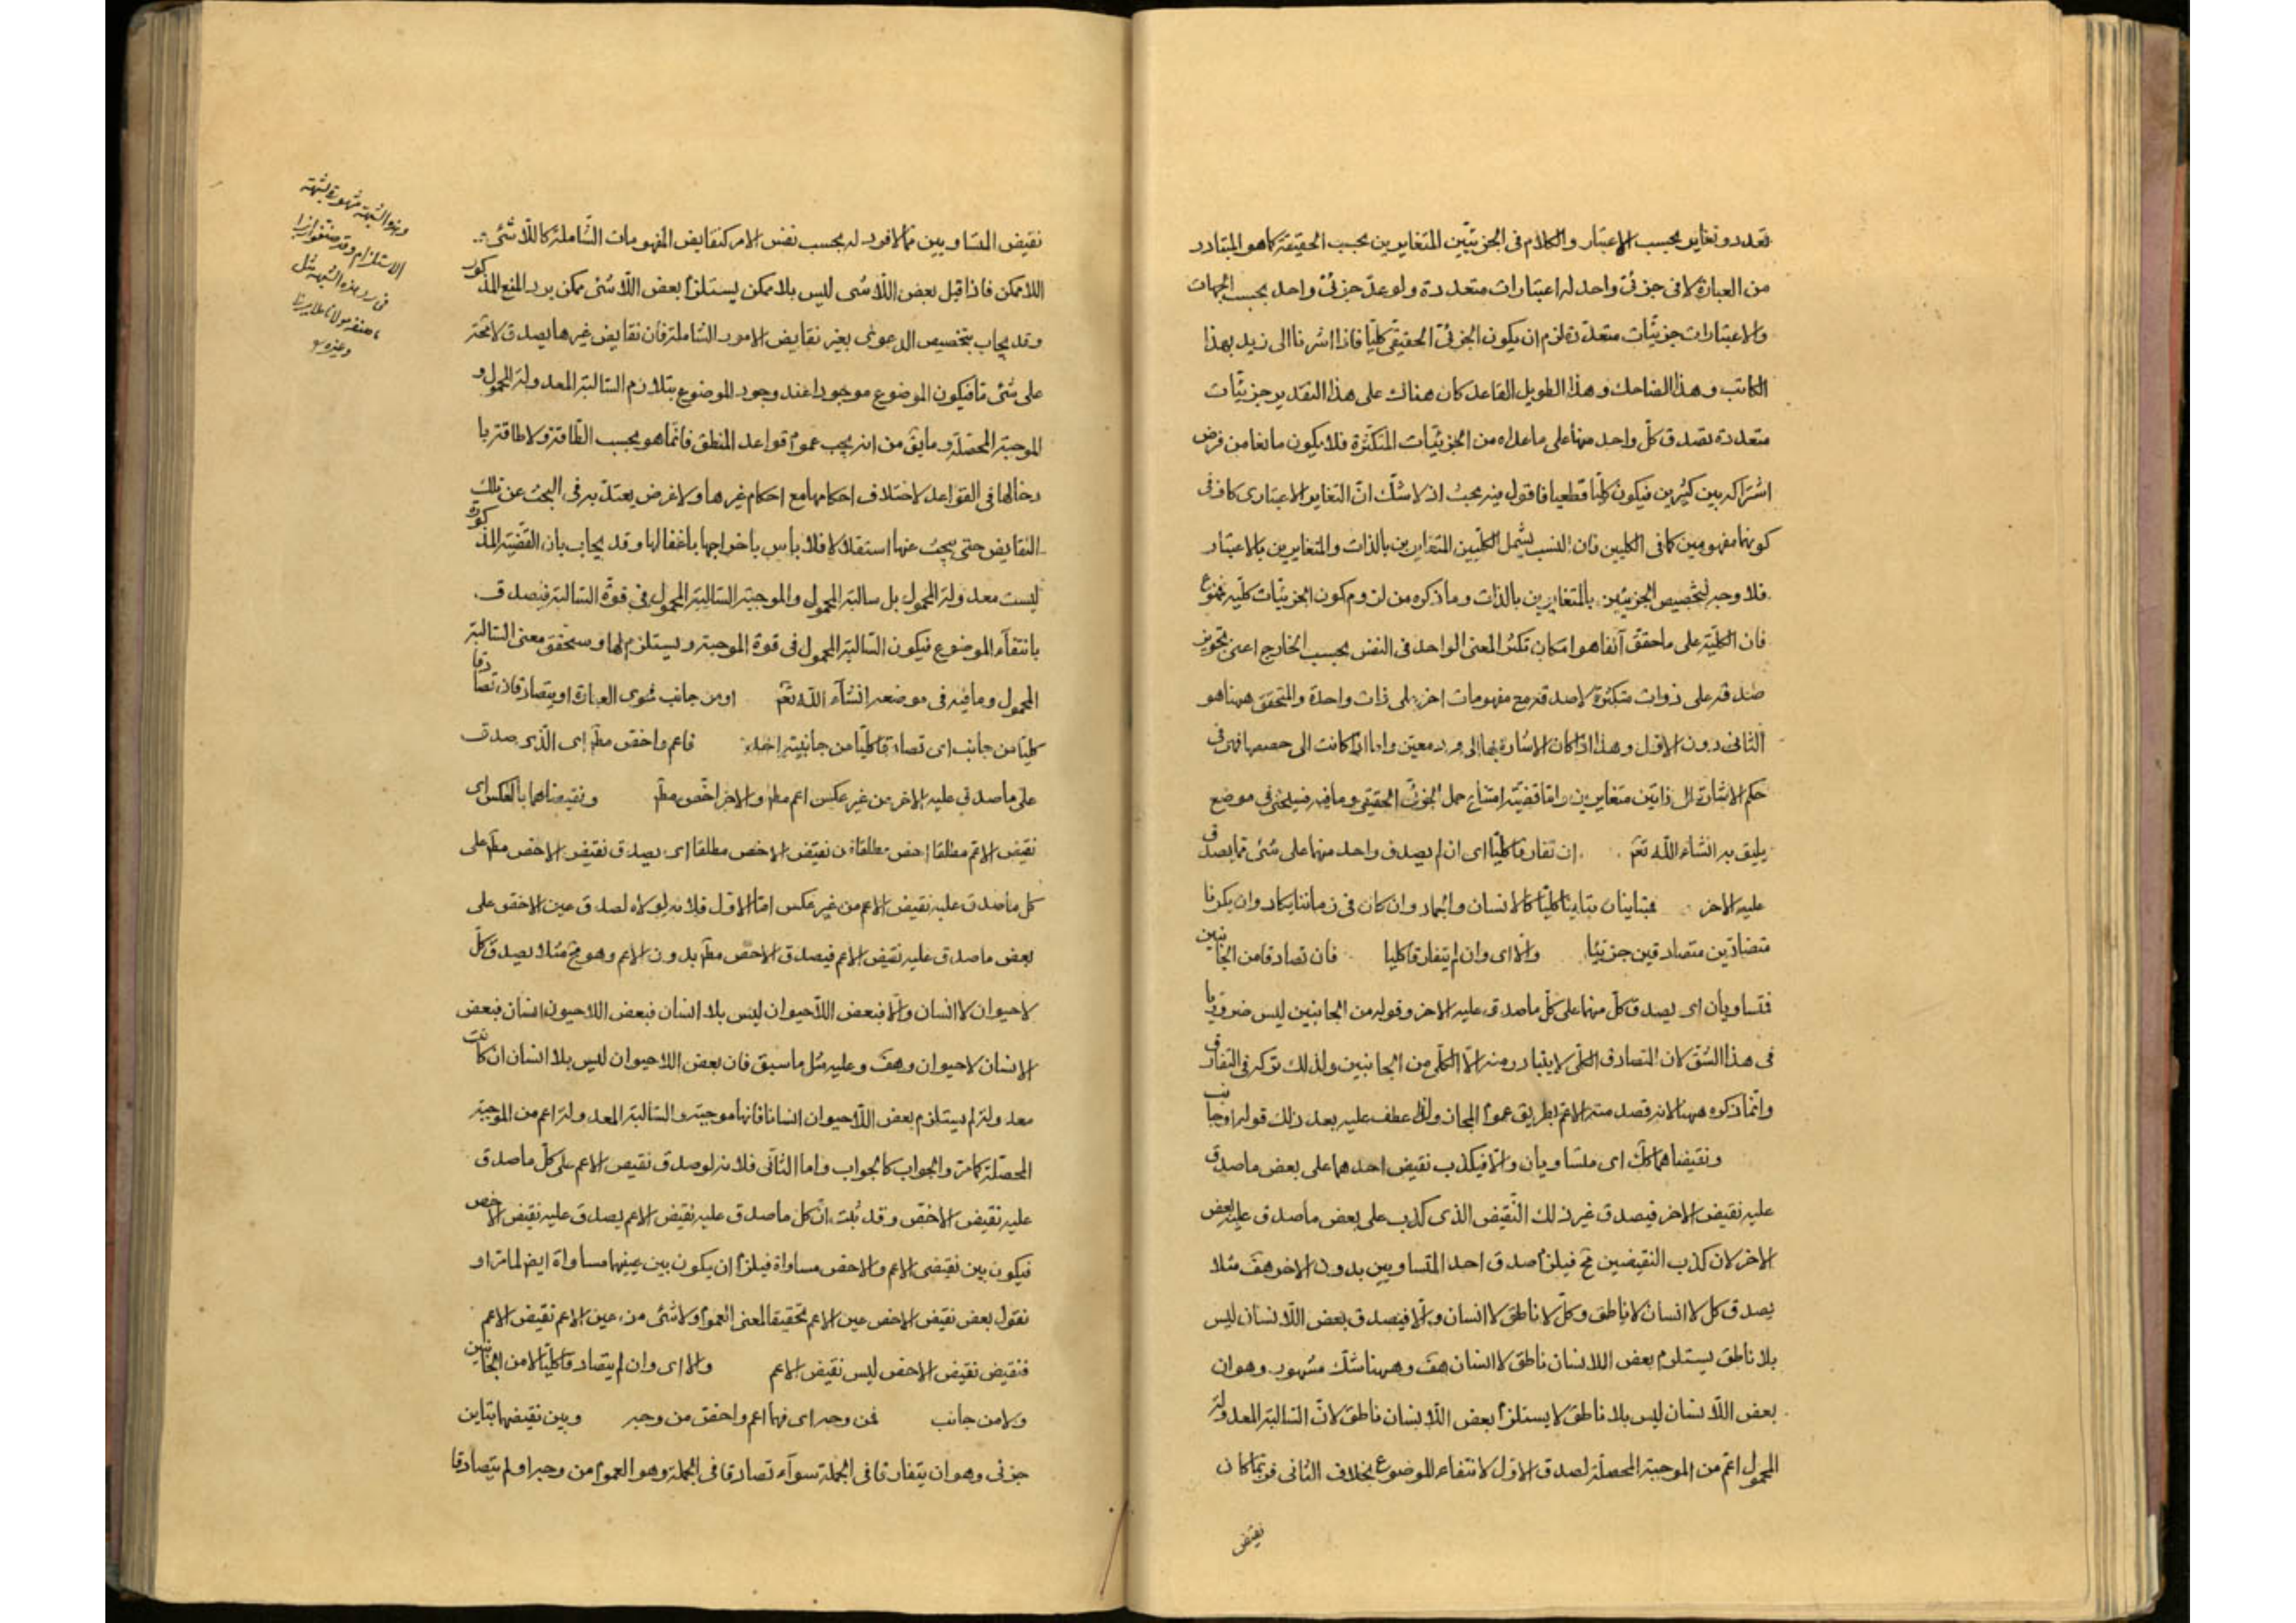 تعدد وتغاير بحسب الاعتبار والكلام فى الجزئيّين المتغايرين بحسب الحقيقة كما هو المتبادر
من العبارة لا فى جزئىّ واحد له اعتبارات متعددة ولو عدّ جزئىّ واحد بحسب الجهات
والاعتبارات جزئيّات متعدّدة لزم ان يكون الجزئىّ الحقيقى كليّا فاذا اشرنا الى زيد بهذا
الكاتب وهذا الضاحك وهذا الطويل القاعد كان هناك على هذا التقدير جزئيّات
متعددة يصدق كلّ واحد منها على ما عداه من الجزئيّات المتكثرة فلا يكون مانعا من فرض
اشتراكه بين كثيرين فيكون كليّا قطعيا فاقول فيه بحث اذ لا شكّ انّ التغاير الاعتبارى كاف فى
كونهما مفهومين كما فى الكليين فان النسب يشمل الكليّين المتغايرين بالذات والمتغايرين بالاعتبار
فلا وجه لتخصيص الجزئيين بالمتغايرين بالذات وما ذكره من لزوم كون الجزئيّات كليّة ممنوع
فان الكليّة على ما حقق آنفا هو امكان تكثر المعنى الواحد فى النفس بحسب الخارج اعنى تجويز
صدقه على ذوات متكثرة لا صدقه مع مفهومات اخر على ذات واحدة والمتحقق ههنا هو
الثانى دون الاول وهذا اذا كان الاشارة بها الى فرد معيّن واما اذا كانت الى حصصها فهى فى
حكم الاشارة الى ذاتين متغايرين واما قضيّة امتناع حمل الجزئىّ الحقيقى وما فيه فسيجئ فى موضع
يليق به انشاء اللّه تعم ان تفارقا كليّا اى ان لم يصدق واحد منهما على شئ مما يصدق
عليه الاخر فمتباينان تباينا كليّا كالانسان والجماد وان كان فى زماننا يكاد وان يكونا
متضادّين متصادقين جزئيّا والّا اى وان لم يتفارقا كليا فان تصادقا من الجانبين
فمتساويان اى يصدق كلّ منهما على كلّ ما صدق عليه الاخر وقوله من الجانبين ليس ضروريّا
فى هذا الشقّ لان التصادق الكلّى لا يتبادر منه الّا الكلّى من الجانبين ولذلك تركه فى التفارق
وانّما ذكره ههنا لانه قصد منه الاعمّ بطريق عموم المجاز ولذا عطف عليه بعد ذلك قوله او جانب
ونقيضاهما كك اى متساويان والّا فيكذب نقيض احدهما على بعض ما صدق
عليه نقيض الاخر فيصدق غير ذلك النّقيض الذى كذب على بعض ما صدق عليه بعض
الاخر لان كذب النقيضين مح فيلزم صدق احد المتساويين بدون الاخر هف مثلا
يصدق كل لا انسان لا ناطق وكلّ لا ناطق لا انسان والّا فيصدق بعض اللّا انسان ليس
بلا ناطق يستلزم بعض اللا نسان ناطق لا انسان هف وههنا شكّ مشهور وهو ان
بعض اللّا نسان ليس بلا ناطق لا يستلزم بعض اللّا نسان ناطق لانّ السّالبة المعدولة
المحمول اعمّ من الموجبة المحصلة لصدق الاوّل لانتفاء الموضوع بخلاف الثانى فربّما كان
نقيض
نقيض المتساويين ممّا لا فرد له بحسب نفس الامر كنقايض المفهومات الشاملة كاللّا شئ
اللا ممكن فاذا قيل بعض اللّا شى ليس بلا ممكن يستلزم بعض اللّا شئ ممكن يرد المنع المذكور
وقد يجاب بتخصيص الدعوى بغير نقايض الامور الشاملة فان نقايض غيرها يصدق لا محة
على شئ ما فيكون الموضوع موجودا عند وجود الموضوع يتلازم السّالبة المعدولة المحمول و
الموجبة المحصلة وما يقّ من انه يجب عموم قواعد المنطق فانّما هو بحسب الطّاقة ولا طاقة با
دخالها فى القواعد لاختلاف احكامها مع احكام غيرها ولا غرض يعتدّ به فى البحث عن تلك
النقايض حتى يبحث عنها استقلالا فلا بأس باخراجها باغفالها وقد يجاب بأن القضيّة المذكورة
ليست معدولة المحمول بل سالبة المحمول والموجبة السّالبة المحمول فى قوة السّالبة فيصدق
بانتفاء الموضوع فيكون السّالبة المحمول فى قوة الموجبة ويستلزم لها وسيحقق معنى السّالبة
المحمول وما فيه فى موضعه انشاء اللّه تعم او من جانب فحوى العبارة او يتصادقان تصادقا
كليّا من جانب اى تصادقا كليّا من جانبيه احد فاعم واخصّ مطّ اى الّذى صدق
على ما صدق عليه الاخر من غير عكس اعم مطّ والاخر اخصّ مطّ ونقيضاهما بالعكس اى
نقيض الاعمّ مطلقا اخص مطلقا من نقيض الاخص مطلقا اى يصدق نقيض الاخص مطّ على
كل ما صدق عليه نقيض الاعم من غير عكس امّا الاوّل فلانه لولاه لصدق عين الاخصّ على
بعض ما صدق عليه نقيض الاعم فيصدق الاخص مطّ بدون الاعم وهو مح مثلا يصدق كلّ
لا حيوان لا انسان والّا فبعض اللّا حيوان ليس بلا انسان فبعض اللا حيوان انسان فبعض
الانسان لا حيوان وهف وعليه مثل ما سبق فان بعض اللا حيوان ليس بلا انسان ان كانت
معدولة لم يستلزم بعض اللّا حيوان انسانا فانها موجبة والسّالبة المعدولة اعم من الموجبة
المحصّلة كما مر والجواب كالجواب واما الثّانى فلانه لو صدق نقيض الاعم على كلّ ما صدق
عليه نقيض الاخصّ وقد ثبت انّ كل ما صدق عليه نقيض الاعم يصدق عليه نقيض الاخص
فيكون بين نقيضى الاعم والاخص مساواة فيلزم ان يكون بين عينيهما مساواة ايض لما مرّ او
نقول بعض نقيض الاخص عين الاعم تحقيقا لمعنى العموم ولا شئ من عين الاعم نقيض الاعم
فنقيض نقيض الاخص ليس نقيض الاعم والا اى وان لم يتصادقا كليّا لا من الجانبين
ولا من جانب فمن وجه اى فهما اعم واخصّ من وجه وبين نقيضيهما تباين
جزئى وهو ان يتفارقا فى الجملة سوآء تصادقا فى الجملة وهو العموم من وجه او لم يتصادقا
وهذه الشبهة مشهورة بشبهة
الاستلزام وقد صنفوا
فى رد هذه الشبهة مثل